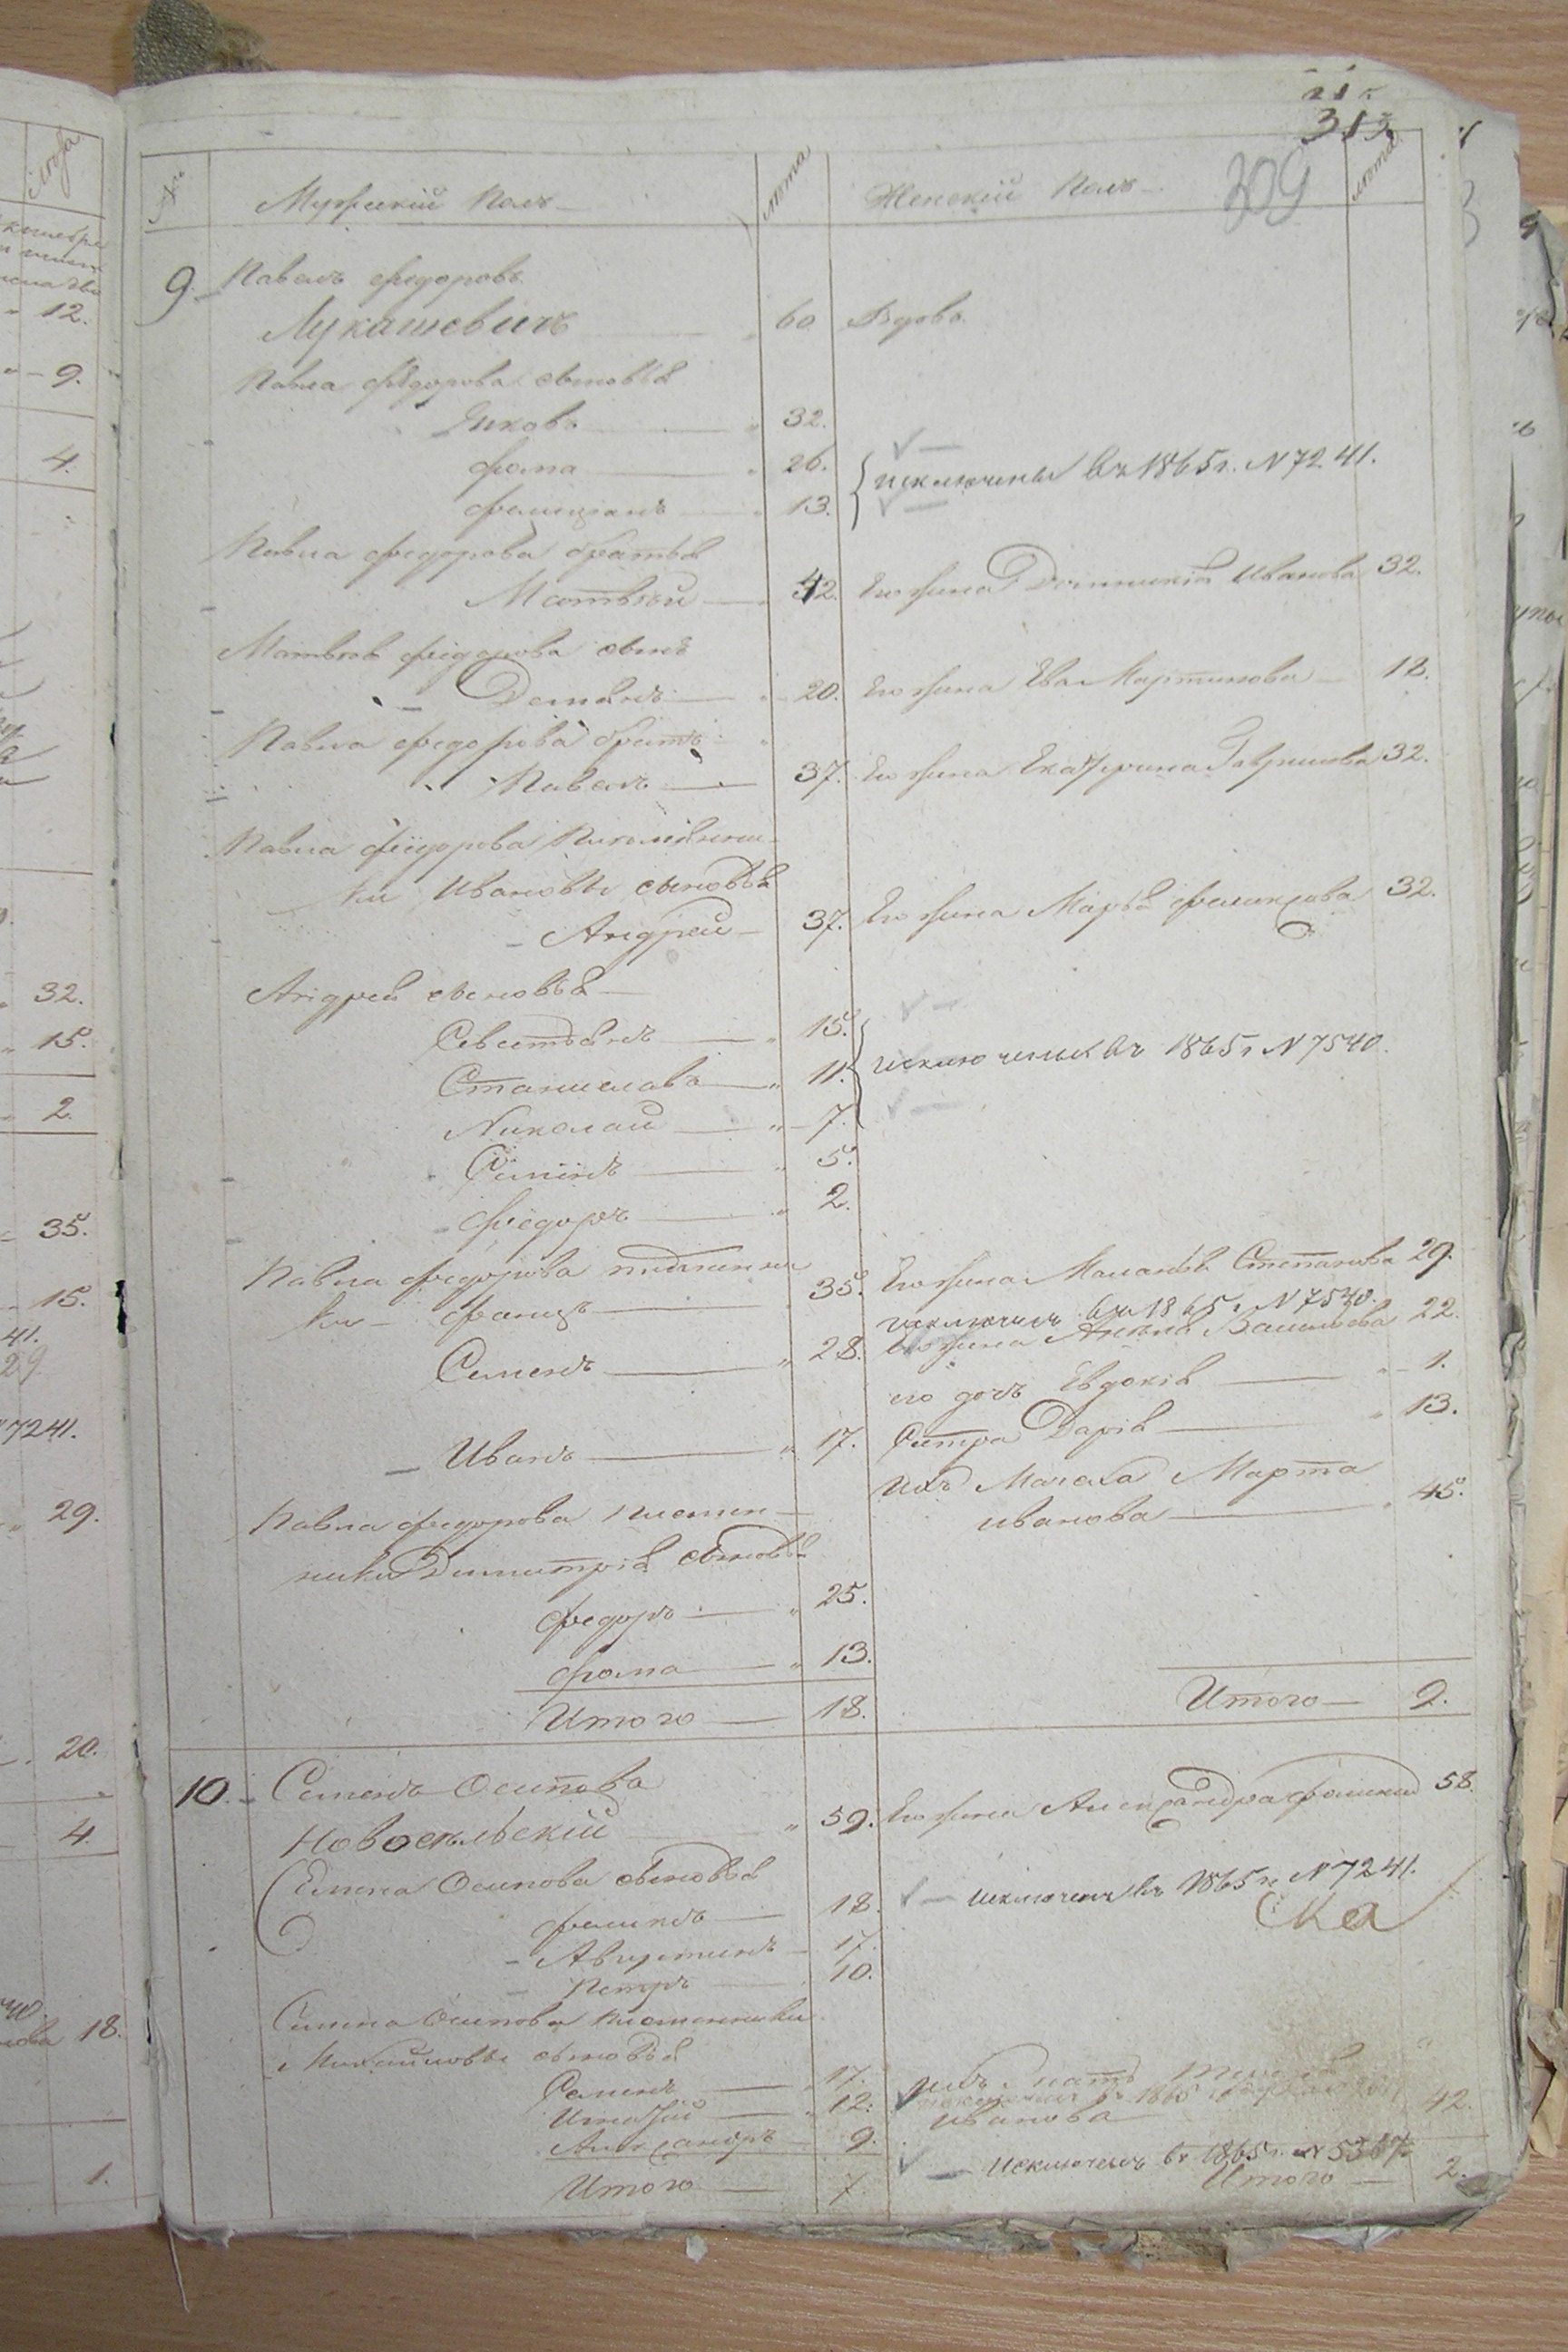 313
309
№ Мужескій Полъ лѣта Женскій Полъ лѣта
9. Павелъ Федоровъ
Лукашевичъ 60 Вдовъ
Павла Федорова сыновья
Яковъ 32.
Фома 26. исключены въ 1865 г. N 7241.
Фелиціанъ 13.
Павла Федорова братья
Матвѣй 42. Его жена Доминикія Иванова 32.
Матвѣя Федорова сынъ
Демьянъ 20. Его жена Ева Мартинова 18.
Павла Федорова братъ
Павелъ 37. Его жена Екатерина Гаврилова 32.
Павла Федорова Племянни-
ки Ивановы сыновья
Андрей 37. Его жена Марья Феликсова 32.
Андрея сыновья
Севестьянъ 15.
Станиславъ 11. исключены въ 1865 г N 7540.
Николай 7.
Семенъ 5.
Федоръ 2.
Павла Федорова племянни
ки Францъ 35. Его жена Маланья Степанова 29.
исключенъ въ 1865 г N 7540.
Семенъ 28. Его жена Василева 22.
его дочь Евдокія 1.
Иванъ 17. Сестра Дарія 13.
Ихъ Мачеха Марта
Иванова 45.
Павла Федорова племен-
ники Димитрія сыновья
Федоръ 25.
Фома 13.
Итого 18. Итого 9.
10. Семенъ Осипова
Новосельскій 59. Его жена Александра Фомина 58.
Семена Осипова сыновья
Феликсъ 18. исключенъ въ 1865 г. N 7241.
Августинъ 17.
Петръ 10.
Семена Осипова племянники
Михайловы сыновья
Семенъ 17. ихъ мать
Игнатій 12. Иванова 42.
Александръ 9.
исключенъ въ 1865 г. N 5367.
Итого 7 Итого 2.
12.
9.
4.
32.
15.
2.
35.
15.
41.
29.
7241.
29.
20.
4.
18.
1.